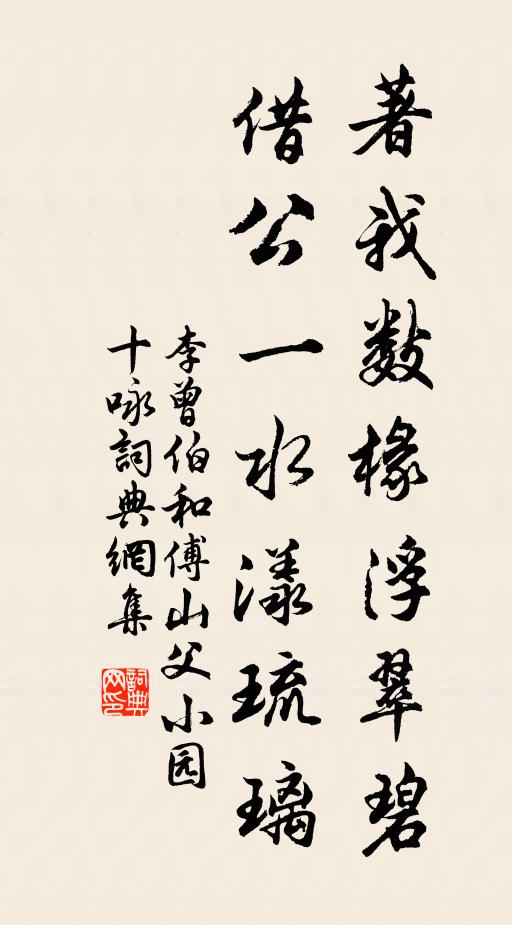 著我数椽浮翠碧
借公一水漾琉璃
李曾伯和傅山父小园
十咏詞典網集
詞典网印